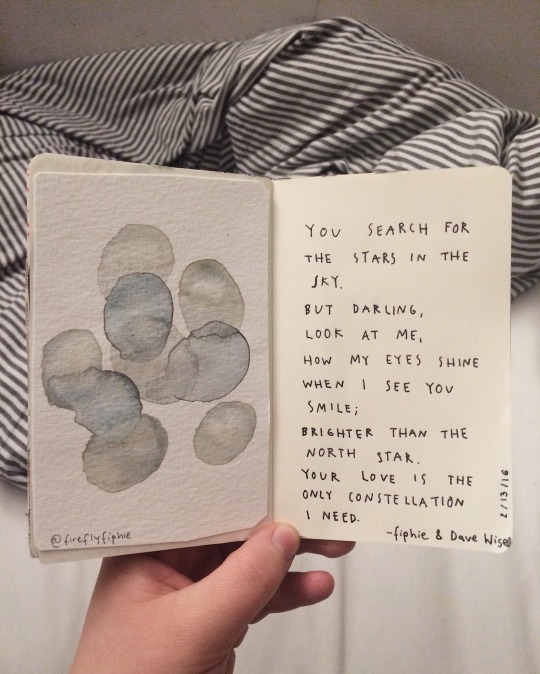 @fireflyfiphie
YOU SEARCH FOR
THE STARS IN THE
SKY.
BUT DARLING,
LOOK AT ME,
HOW MY EYES SHINE
WHEN I SEE YOU
SMILE;
BRIGHTER THAN THE
NORTH STAR.
YOUR LOVE IS THE
ONLY CONSTELLATION
I NEED.
-fiphie & Dave Wise
2/13/16